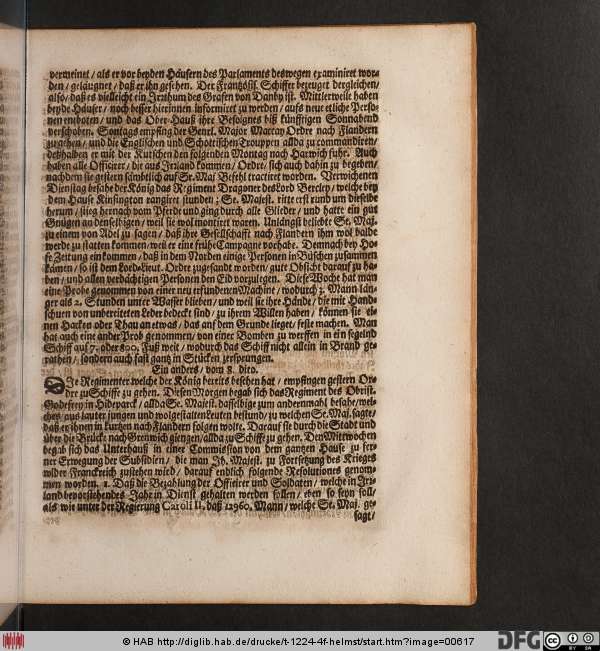 vermeinet / als er vor beyden Häusern des Parlaments deswegen examiniret wor-
den / geläugnet / daß er ihn gesehen. Der Französis. Schiffer bezeuget dergleichen /
also / daß es vielleicht ein Irrthum des Grafen von Danby ist. Mittlerweile haben
beyde Häuser / noch besser hierinnen informiret zu werden / aufs neue etliche Perso-
nen entboten / und das Ober-Hauß ihre Besoignes biß künfftigen Sonnabend
verschoben. Sontags empfing der Genrl. Major Maccay Ordre nach Flandern
zu gehen / und die Englischen und Schottischen Trouppen allda zu commandiren /
deßhalben er mit der Kutschen den folgenden Montag nach Hartwich fuhr. Auch
haben alle Officirer / die aus Irrland kommen / Ordre / sich auch dahin zu begeben /
nachdem sie gestern sämbtlich auf Sr. Maj. Befehl tractiret worden. Verwichenen
Dienstag besahe der König das Regiment Dragoner des Lord Bercley / welche bey
dem Hause Kinsington rangiret stunden ; Se. Majest. ritte erst rund um dieselbe
herum / stieg hernach vom Pferde und ging durch alle Glieder / und hatte ein gut
Gnügen an denselbigen / weil sie wol montiret waren. Unlängst beliebte Se. Maj.
zu einem von Adel zu sagen / daß ihre Gesellschafft nach Flandern ihm wol balde
werde zu statten kommen / weil er eine frühe Campagne vorhabe. Demnach bey Ho-
fe Zeitung einkommen / daß in dem Norden einige Personen in Büschen zusammen
kämen / so ist dem Lord-Lieut. Ordre zugesandt worden / gute Obsicht darauf zu ha-
ben / und allen verdächtigen Personen den Eid vorzulegen. Diese Woche hat man
eine Probe genommen von einer neu erfundenen Machine / wodurch 3. Mann län-
ger als 2. Stunden unter Wasser blieben / und weil sie ihre Hände / die mit Hand-
schuen von unbereiteten Leder bedeckt sind / zu ihrem Willen haben / können sie ei-
nen Hacken oder Thau an etwas / das auf dem Grunde lieget / feste machen. Man
hat auch eine ander Prob genommen / von einer Bomben zu werffen in ein segelnd
Schiff auf 7. oder 800. Fuß weit / wodurch das Schiff nicht allein in Brand ge-
rathen / sondern auch fast gantz in Stücken zersprungen.
Ein anders / vom 8. dito.
DJe Regimenter welche der König bereits besehen hat / empfingen gestern Or-
dre zu Schiffe zu gehen. Diesen Morgen begab sich das Regiment des Obrist.
Godefrey in Hidepарck / allda Se. Majest. dasselbige zum andernmahl besahe / wel-
ches aus lauter jungen und wolgestalten Leuten bestund / zu welchen Se. Maj. sagte /
daß er ihnen in kurtzen nach Flandern folgen wolte. Darauf sie durch die Stadt und
über die Brücke nach Grenwich giengen / allda zu Schiffe zu gehen. Den Mittwochen
begab sich das Unterhauß in einer Commission von dem gantzen Hause zu fer-
ner Erwegung der Subsidien / die man Jh. Majest. zu Fortsetzung des Krieges
wider Franckreich zustehen wird / darauf endlich folgende Resolutiones genom-
men worden. 1. Daß die Bezahlung der Officirer und Soldaten / welche in Irr-
land bevorstehendes Jahr in Dienst gehalten werden sollen / eben so seyn soll /
als wie unter der Regierung Caroli II. daß 12960. Mann / welche Se. Maj. ge-
sagt /
© HAB http://diglib.hab.de/drucke/t-1224-4f-helmst/start.htm?image=00617
DFG
cc
BY SA